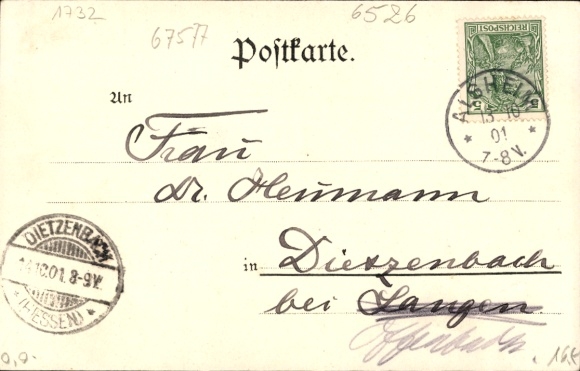 1732
67577
6526
Postkarte.
REICHSPOST
ALSHEIM
13 10
01
7-8 V.
An
Frau
Dr. Heumann
in Dietzenbach
bei Langen
Offenbach
DIETZENBACH
14.10.01. 8-9V.
(HESSEN)